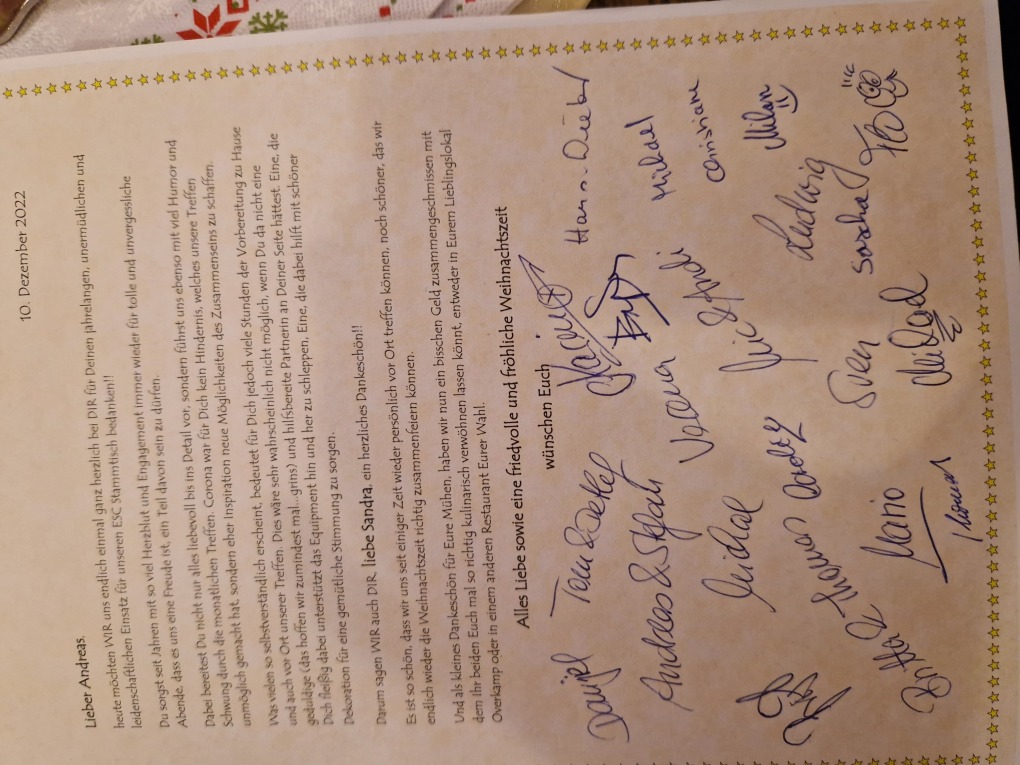 10. Dezember 2022
Lieber Andreas,
heute möchten WIR uns endlich einmal ganz herzlich bei DIR für Deinen jahrelangen, unermüdlichen und
leidenschaftlichen Einsatz für unseren ESC Stammtisch bedanken!!
Du sorgst seit Jahren mit so viel Herzblut und Engagement immer wieder für tolle und unvergessliche
Abende, dass es uns eine Freude ist, ein Teil davon sein zu dürfen.
Dabei bereitest Du nicht nur alles liebevoll bis ins Detail vor, sondern führst uns ebenso mit viel Humor und
Schwung durch die monatlichen Treffen. Corona war für Dich kein Hindernis, welches unsere Treffen
unmöglich gemacht hat, sondern eher Inspiration neue Möglichkeiten des Zusammenseins zu schaffen.
Was vielen so selbstverständlich erscheint, bedeutet für Dich jedoch viele Stunden der Vorbereitung zu Hause
und auch vor Ort unserer Treffen. Dies wäre sehr wahrscheinlich nicht möglich, wenn Du da nicht eine
geduldige (das hoffen wir zumindest mal...grins) und hilfsbereite Partnerin an Deiner Seite hättest. Eine, die
Dich fleißig dabei unterstützt das Equipment hin und her zu schleppen. Eine, die dabei hilft mit schöner
Dekoration für eine gemütliche Stimmung zu sorgen.
Darum sagen WIR auch DIR, liebe Sandra, ein herzliches Dankeschön!!
Es ist so schön, dass wir uns seit einiger Zeit wieder persönlich vor Ort treffen können, noch schöner, das wir
endlich wieder die Weihnachtszeit richtig zusammenfeiern können.
Und als kleines Dankeschön für Eure Mühen, haben wir nun ein bisschen Geld zusammengeschmissen mit
dem Ihr beiden Euch mal so richtig kulinarisch verwöhnen lassen könnt, entweder in Eurem Lieblingslokal
Overkamp oder in einem anderen Restaurant Eurer Wahl.
Alles Liebe sowie eine friedvolle und fröhliche Weihnachtszeit
wünschen Euch
Daniel Tom & Detlef Hans-Dieter
Andreas & Stefan Michael
Verena & Andi Christiane
Michael Milan
Thomas Ludwig
Britta Sven Sascha Flo
Mario Michael
Thomas